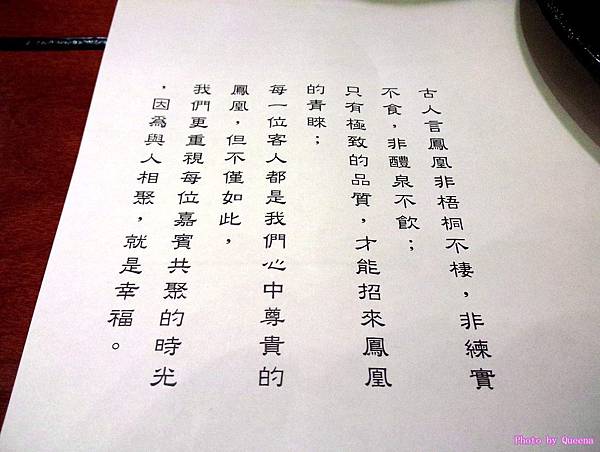 古人言鳳凰非梧桐不棲，非練實
不食，非醴泉不飲；
只有極致的品質，才能招來鳳凰
的青睞；
每一位客人都是我們心中尊貴的
鳳凰，但不僅如此，
我們更重視每位嘉賓共聚的時光
，因為與人相聚，就是幸福。
Photo by Queena